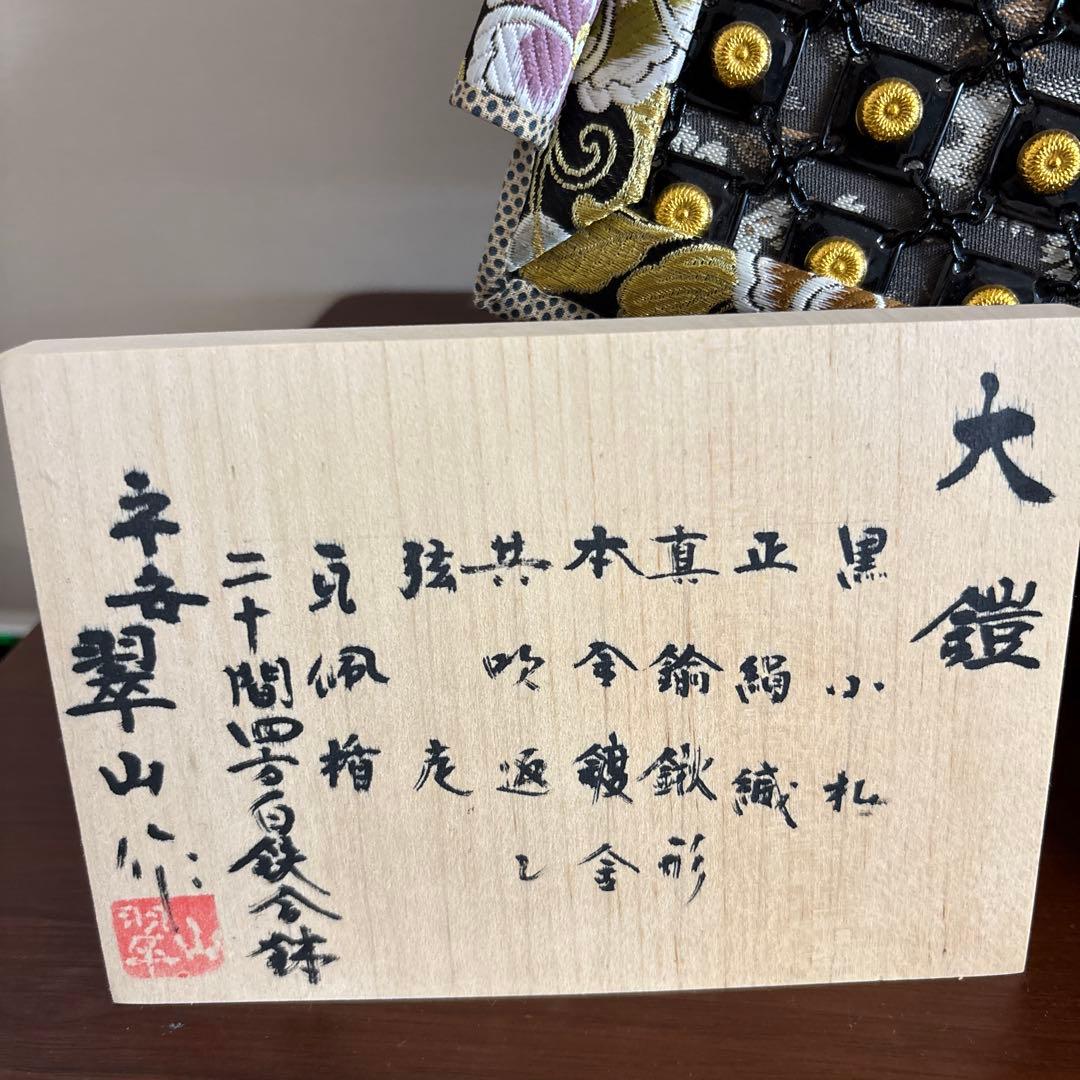 大鎧
黒小札
正絹縅
真鍮鍬形
本金鍍金
共吹返し
弦走
貝佩楯
二十間四方白鉄合鉢
平安翠山作
翠山